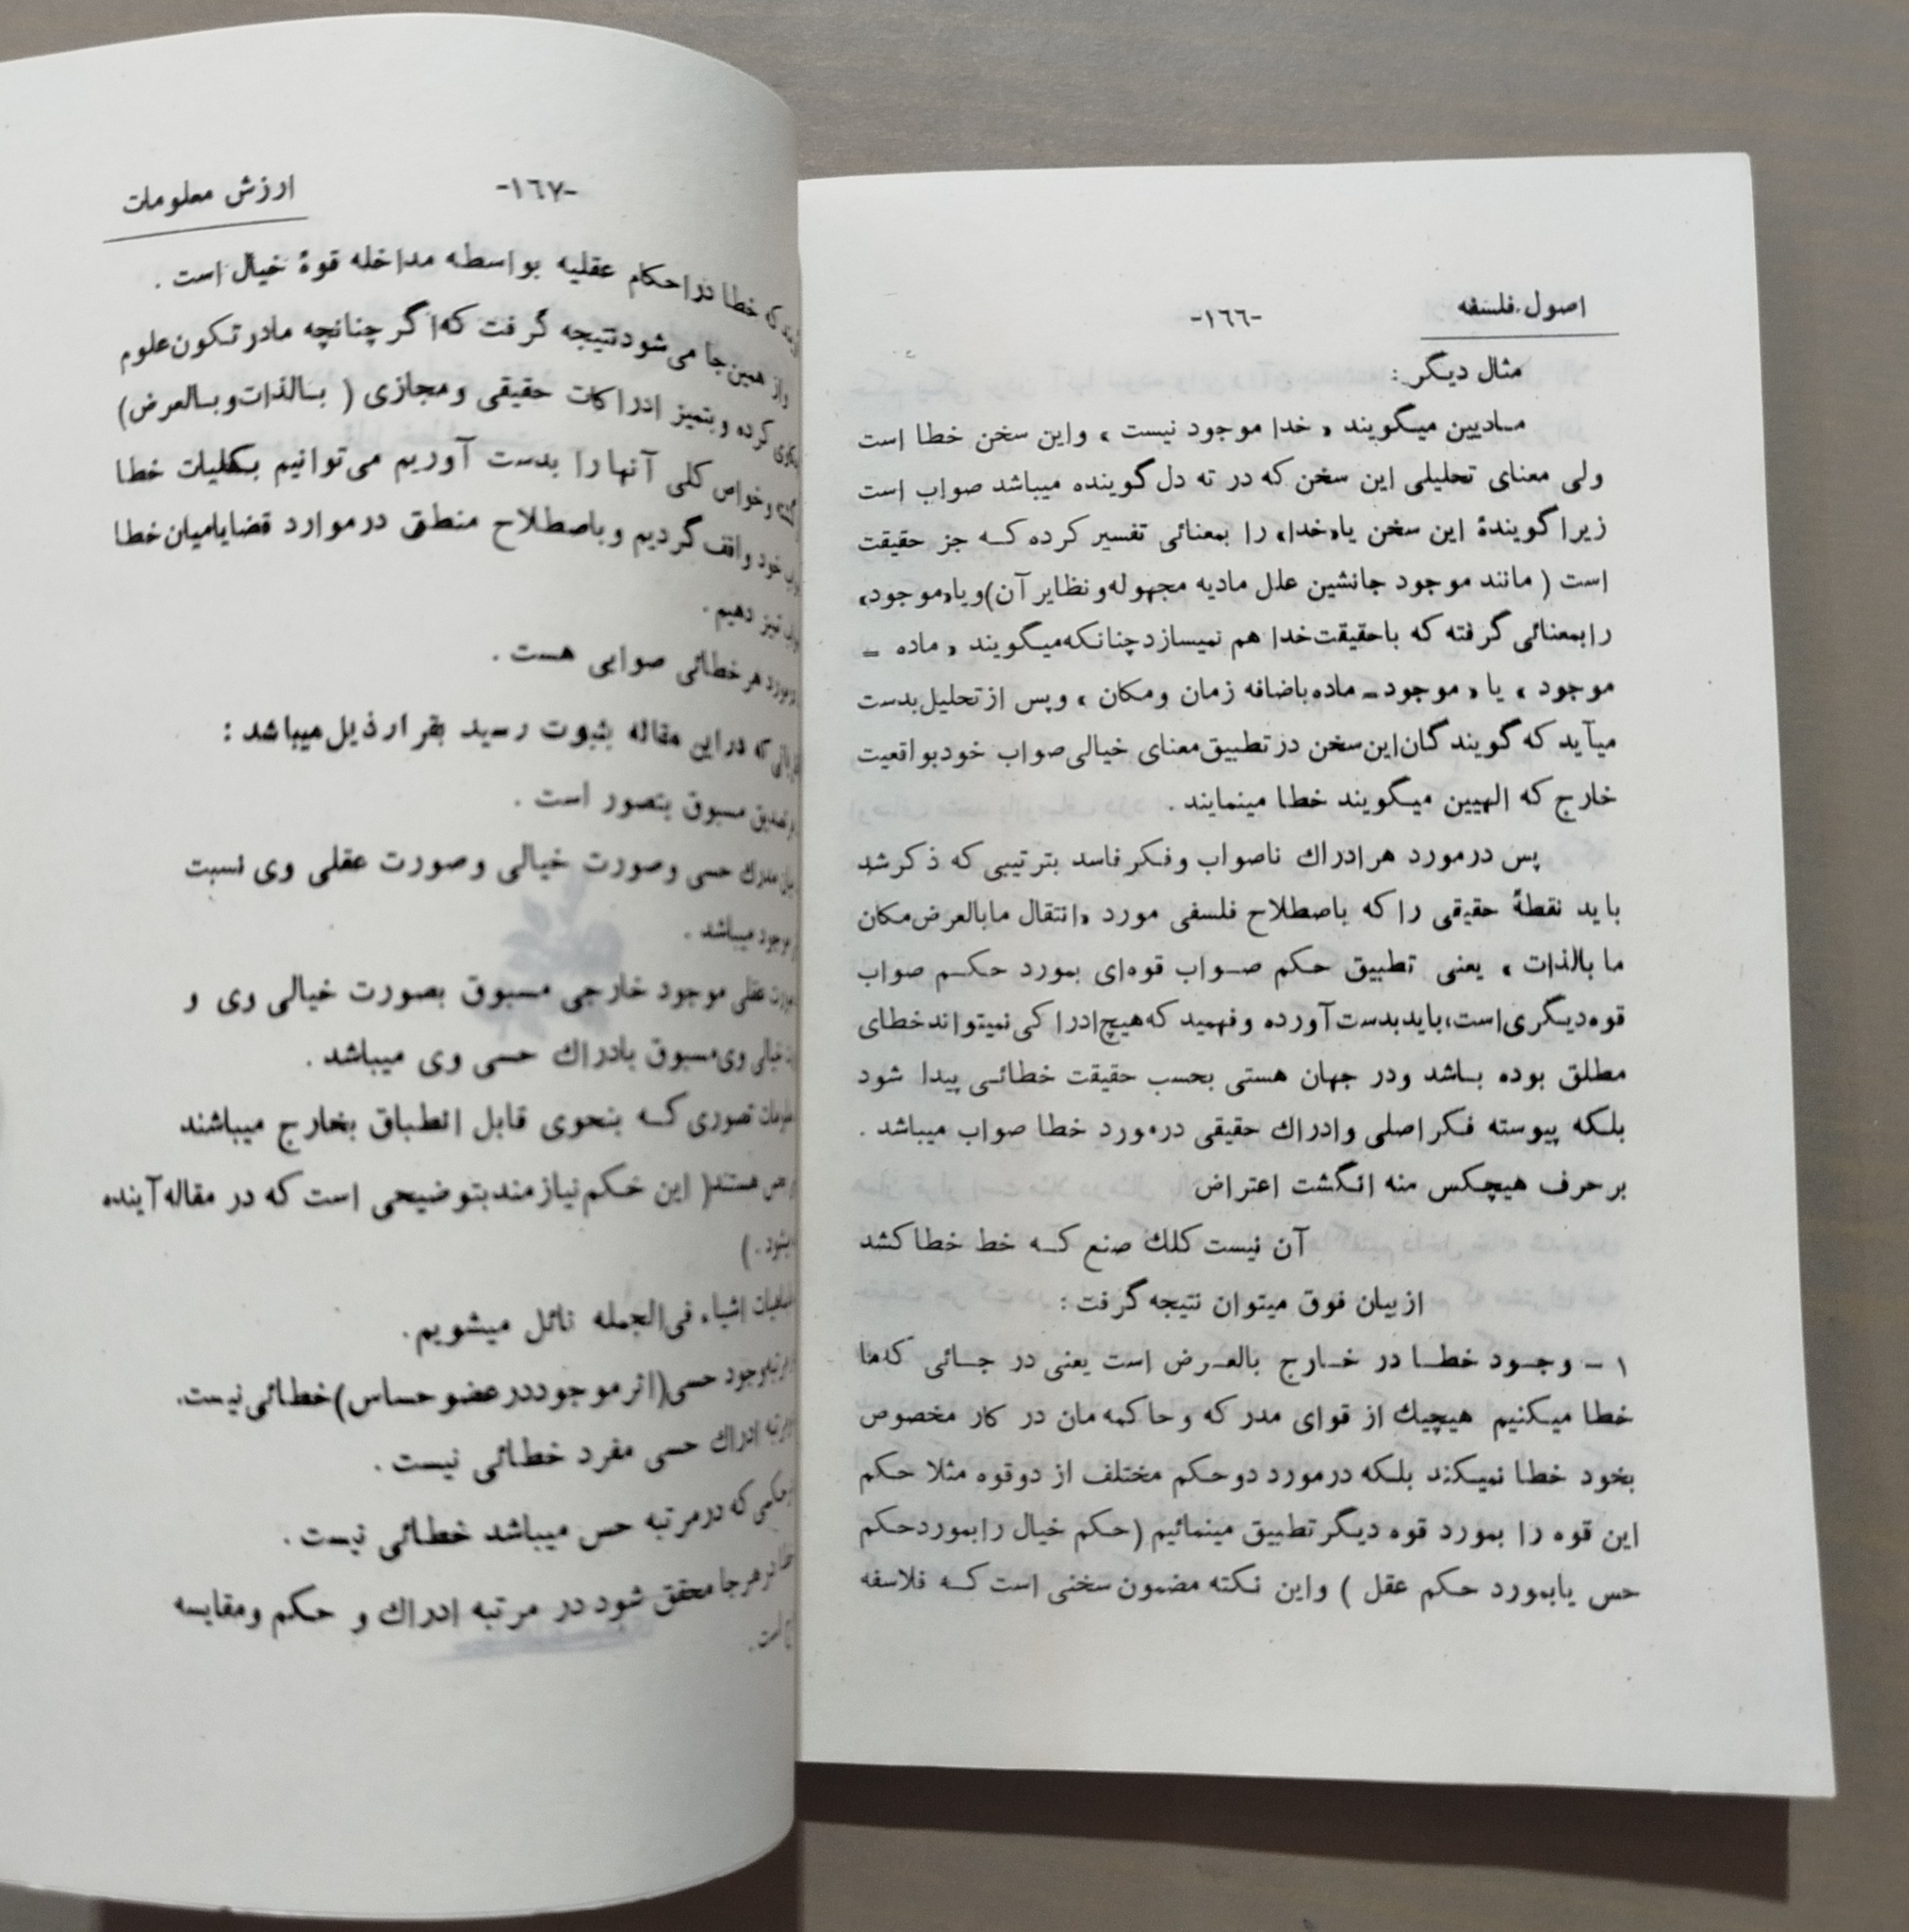 اصول فلسفه
-١٦٦-
مثال دیگر :
مادیین میگویند « خدا موجود نیست » واین سخن خطا است
ولی معنای تحلیلی این سخن که در ته دل گوینده میباشد صواب است
زیرا گویندۀ این سخن یا«خدا» را بمعنائی تفسیر کرده که جز حقیقت
است ( مانند موجود جانشین علل مادیه مجهوله و نظایر آن) و یا«موجود»
را بمعنائی گرفته که با حقیقت خدا هم نمیسازد چنانکه میگویند « ماده =
موجود » یا « موجود = ماده باضافه زمان ومکان » وپس از تحلیل بدست
میآید که گویندگان این سخن در تطبیق معنای خیالی صواب خود بواقعیت
خارج که الهیین میگویند خطا مینمایند .
پس درمورد هر ادراك ناصواب وفکر فاسد بترتیبی که ذکر شد
باید نقطۀ حقیقی را که باصطلاح فلسفی مورد «انتقال مابالعرض مکان
ما بالذات » یعنی تطبیق حکم صواب قوه‌ای بمورد حکم صواب
قوه دیگری است، باید بدست آورده وفهمید که هیچ ادراکی نمیتواند خطای
مطلق بوده باشد ودر جهان هستی بحسب حقیقت خطائی پیدا شود
بلکه پیوسته فکر اصلی وادراك حقیقی درمورد خطا صواب میباشد .
بر حرف هیچکس منه انگشت اعتراض
آن نیست کلك صنع که خط خطا کشد
از بیان فوق میتوان نتیجه گرفت :
١ - وجود خطا در خارج بالعرض است یعنی در جائی که ما
خطا میکنیم هیچیك از قوای مدرکه وحاکمه مان در کار مخصوص
بخود خطا نمیکند بلکه درمورد دو حکم مختلف از دو قوه مثلا حکم
این قوه را بمورد قوه دیگر تطبیق مینمائیم (حکم خیال را بمورد حکم
حس یا بمورد حکم عقل ) واین نکته مضمون سخنی است که فلاسفه
-١٦٧-
ارزش معلومات
خطا در احکام عقلیه بواسطه مداخله قوۀ خیال است .
واز همین جا می‌شود نتیجه گرفت که اگر چنانچه ما در تکون علوم
کرده وبتمیز ادراکات حقیقی ومجازی ( بالذات وبالعرض)
وخواص کلی آنها را بدست آوریم می‌توانیم بکلیات خطا
خود واقف گردیم وباصطلاح منطق درموارد قضایا میان خطا
تمیز دهیم .
هر خطائی صوابی هست .
که دراین مقاله بثبوت رسید بقرار ذیل میباشد :
مسبوق بتصور است .
مدرك حسی وصورت خیالی وصورت عقلی وی نسبت
موجود میباشد .
عقلی موجود خارجی مسبوق بصورت خیالی وی و
خیالی وی مسبوق بادراك حسی وی میباشد .
تصوری که بنحوی قابل انطباق بخارج میباشند
هستند( این حکم نیازمند بتوضیحی است که در مقاله آینده
میشود . )
اشیاء فی‌الجمله نائل میشویم .
وجود حسی(اثر موجود در عضو حساس) خطائی نیست.
ادراك حسی مفرد خطائی نیست .
که درمرتبه حس میباشد خطائی نیست .
در هر جا محقق شود در مرتبه ادراك و حکم ومقایسه
است .